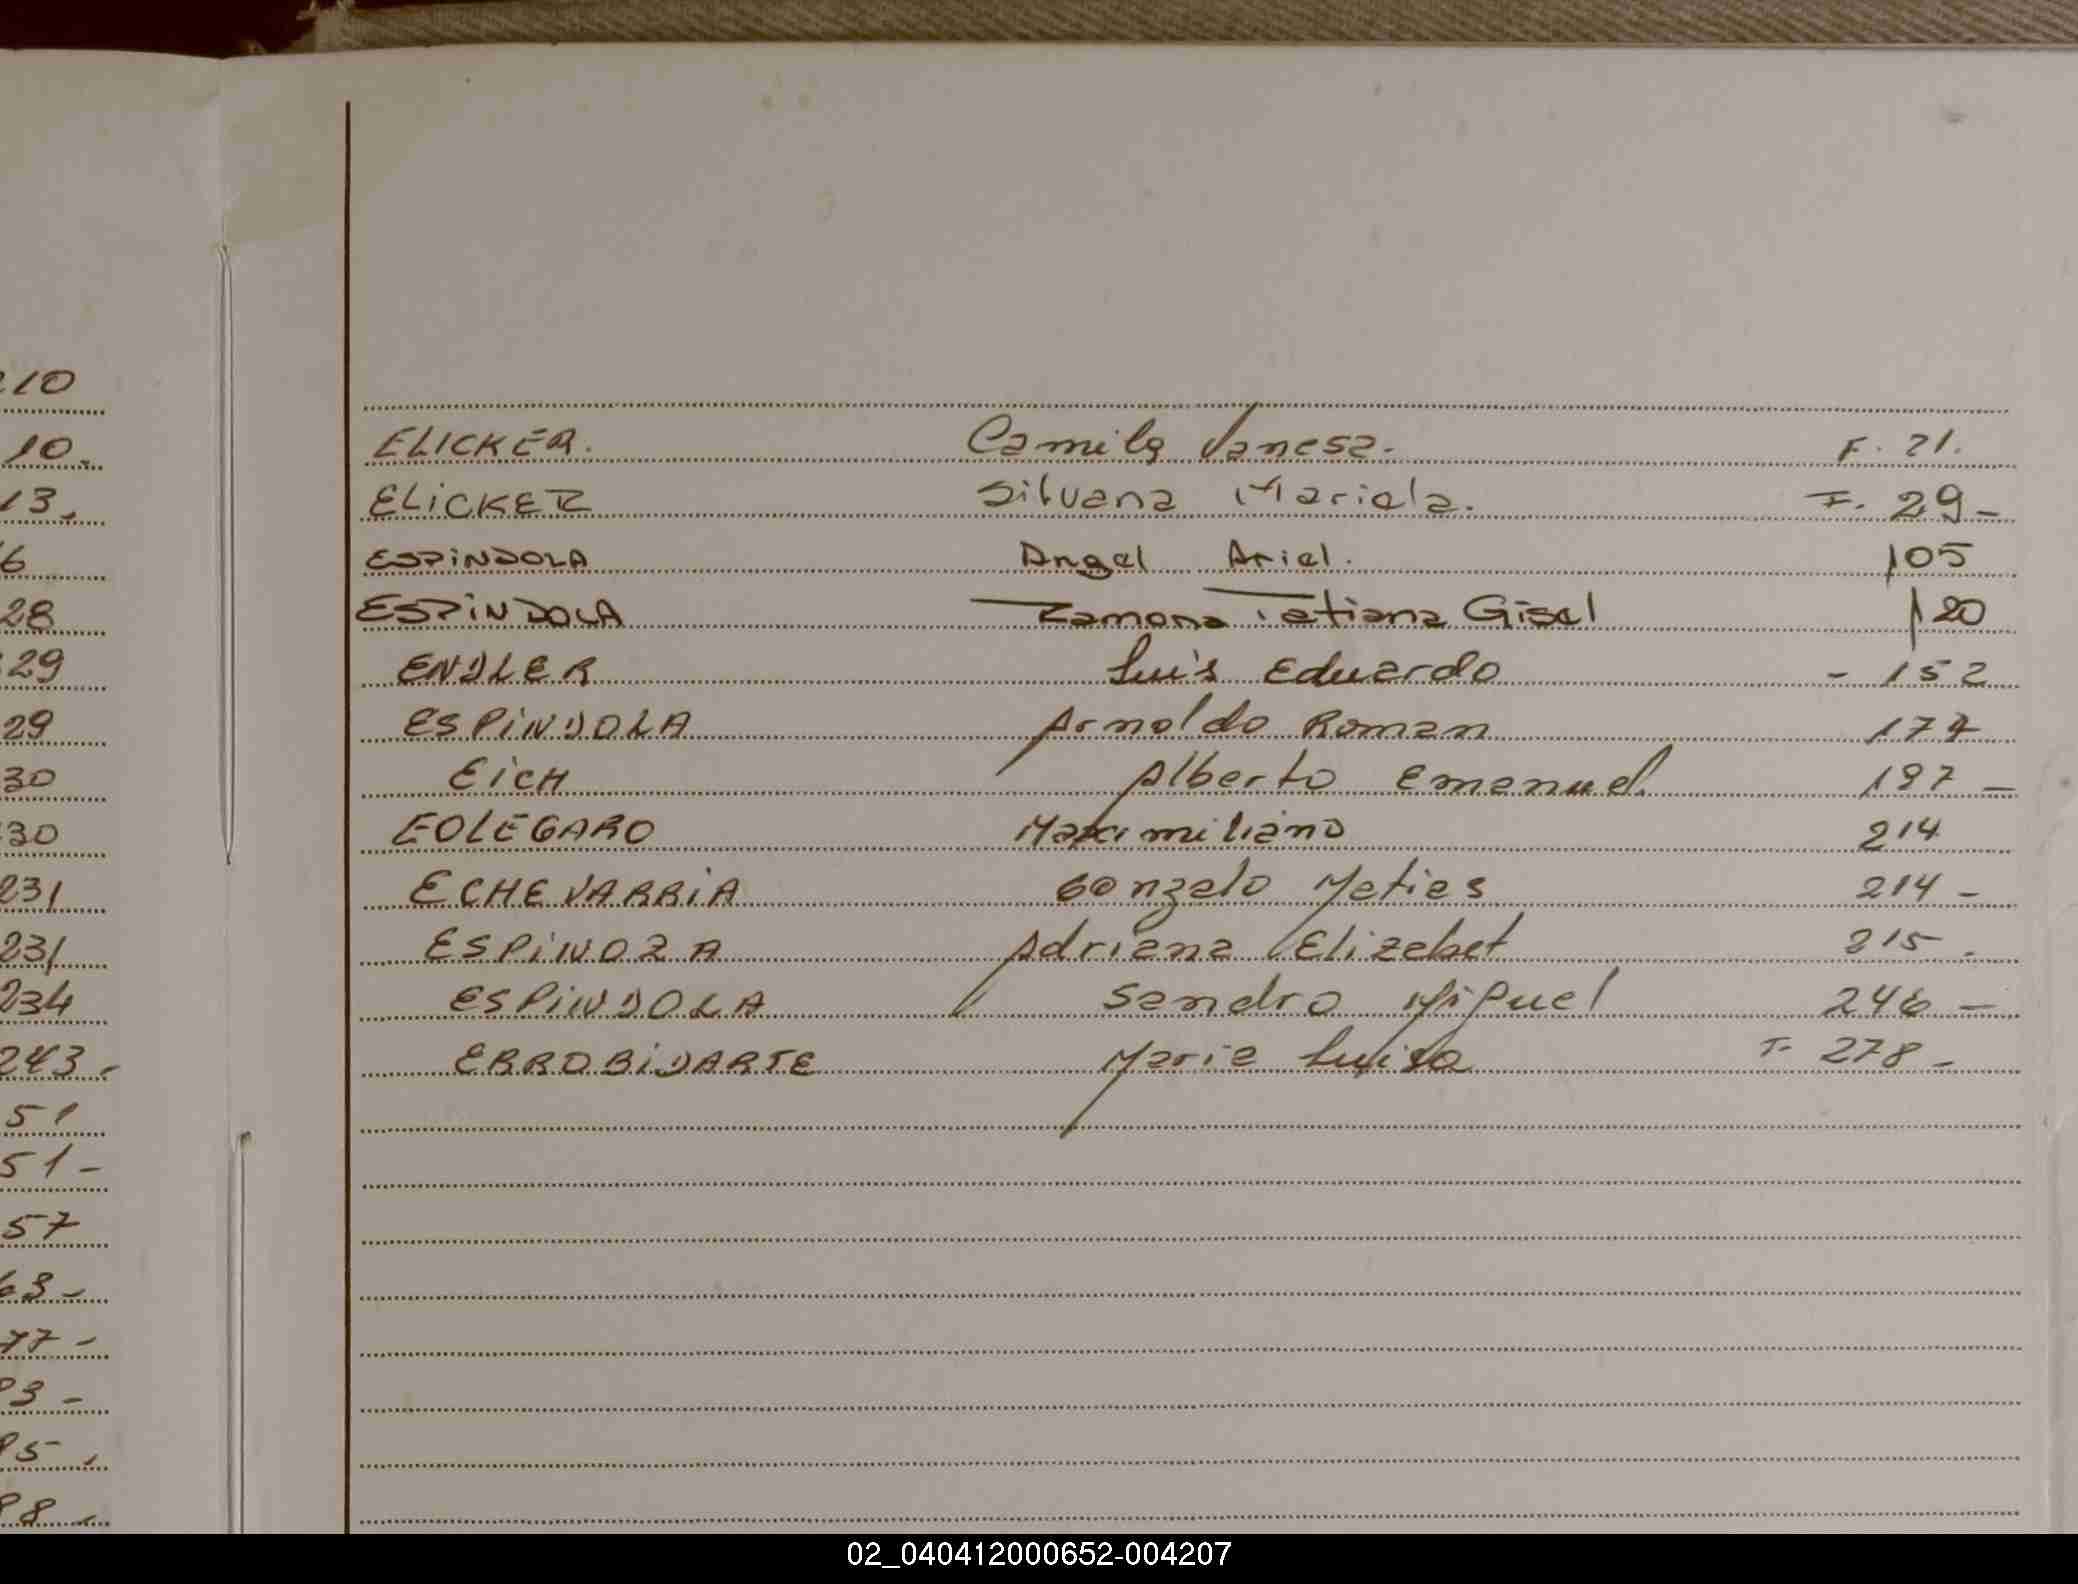 210
10.
13.
6
28
29
29
30
30
231
231
234
243.
51
51-
57
63-
77-
93-
95.
98-
ELICKER. Camila Vanesa. F. 21.
ELICKER Silvana Mariela. F. 29-
ESPINDOLA Angel Ariel. 105
ESPINDOLA Ramona Tatiana Gisel 120
ENDLER Luis Eduardo - 152
ESPINDOLA Arnoldo Roman 177
EICH Alberto Emanuel. 197-
EOLEGARO Maximiliano 214
ECHEVARRIA Gonzalo Matias 214-
ESPINOZA Adriana Elizabet 215.
ESPINDOLA Sandro Miguel 246-
ERROBIDARTE Maria Luisa F- 278-
02_040412000652-004207